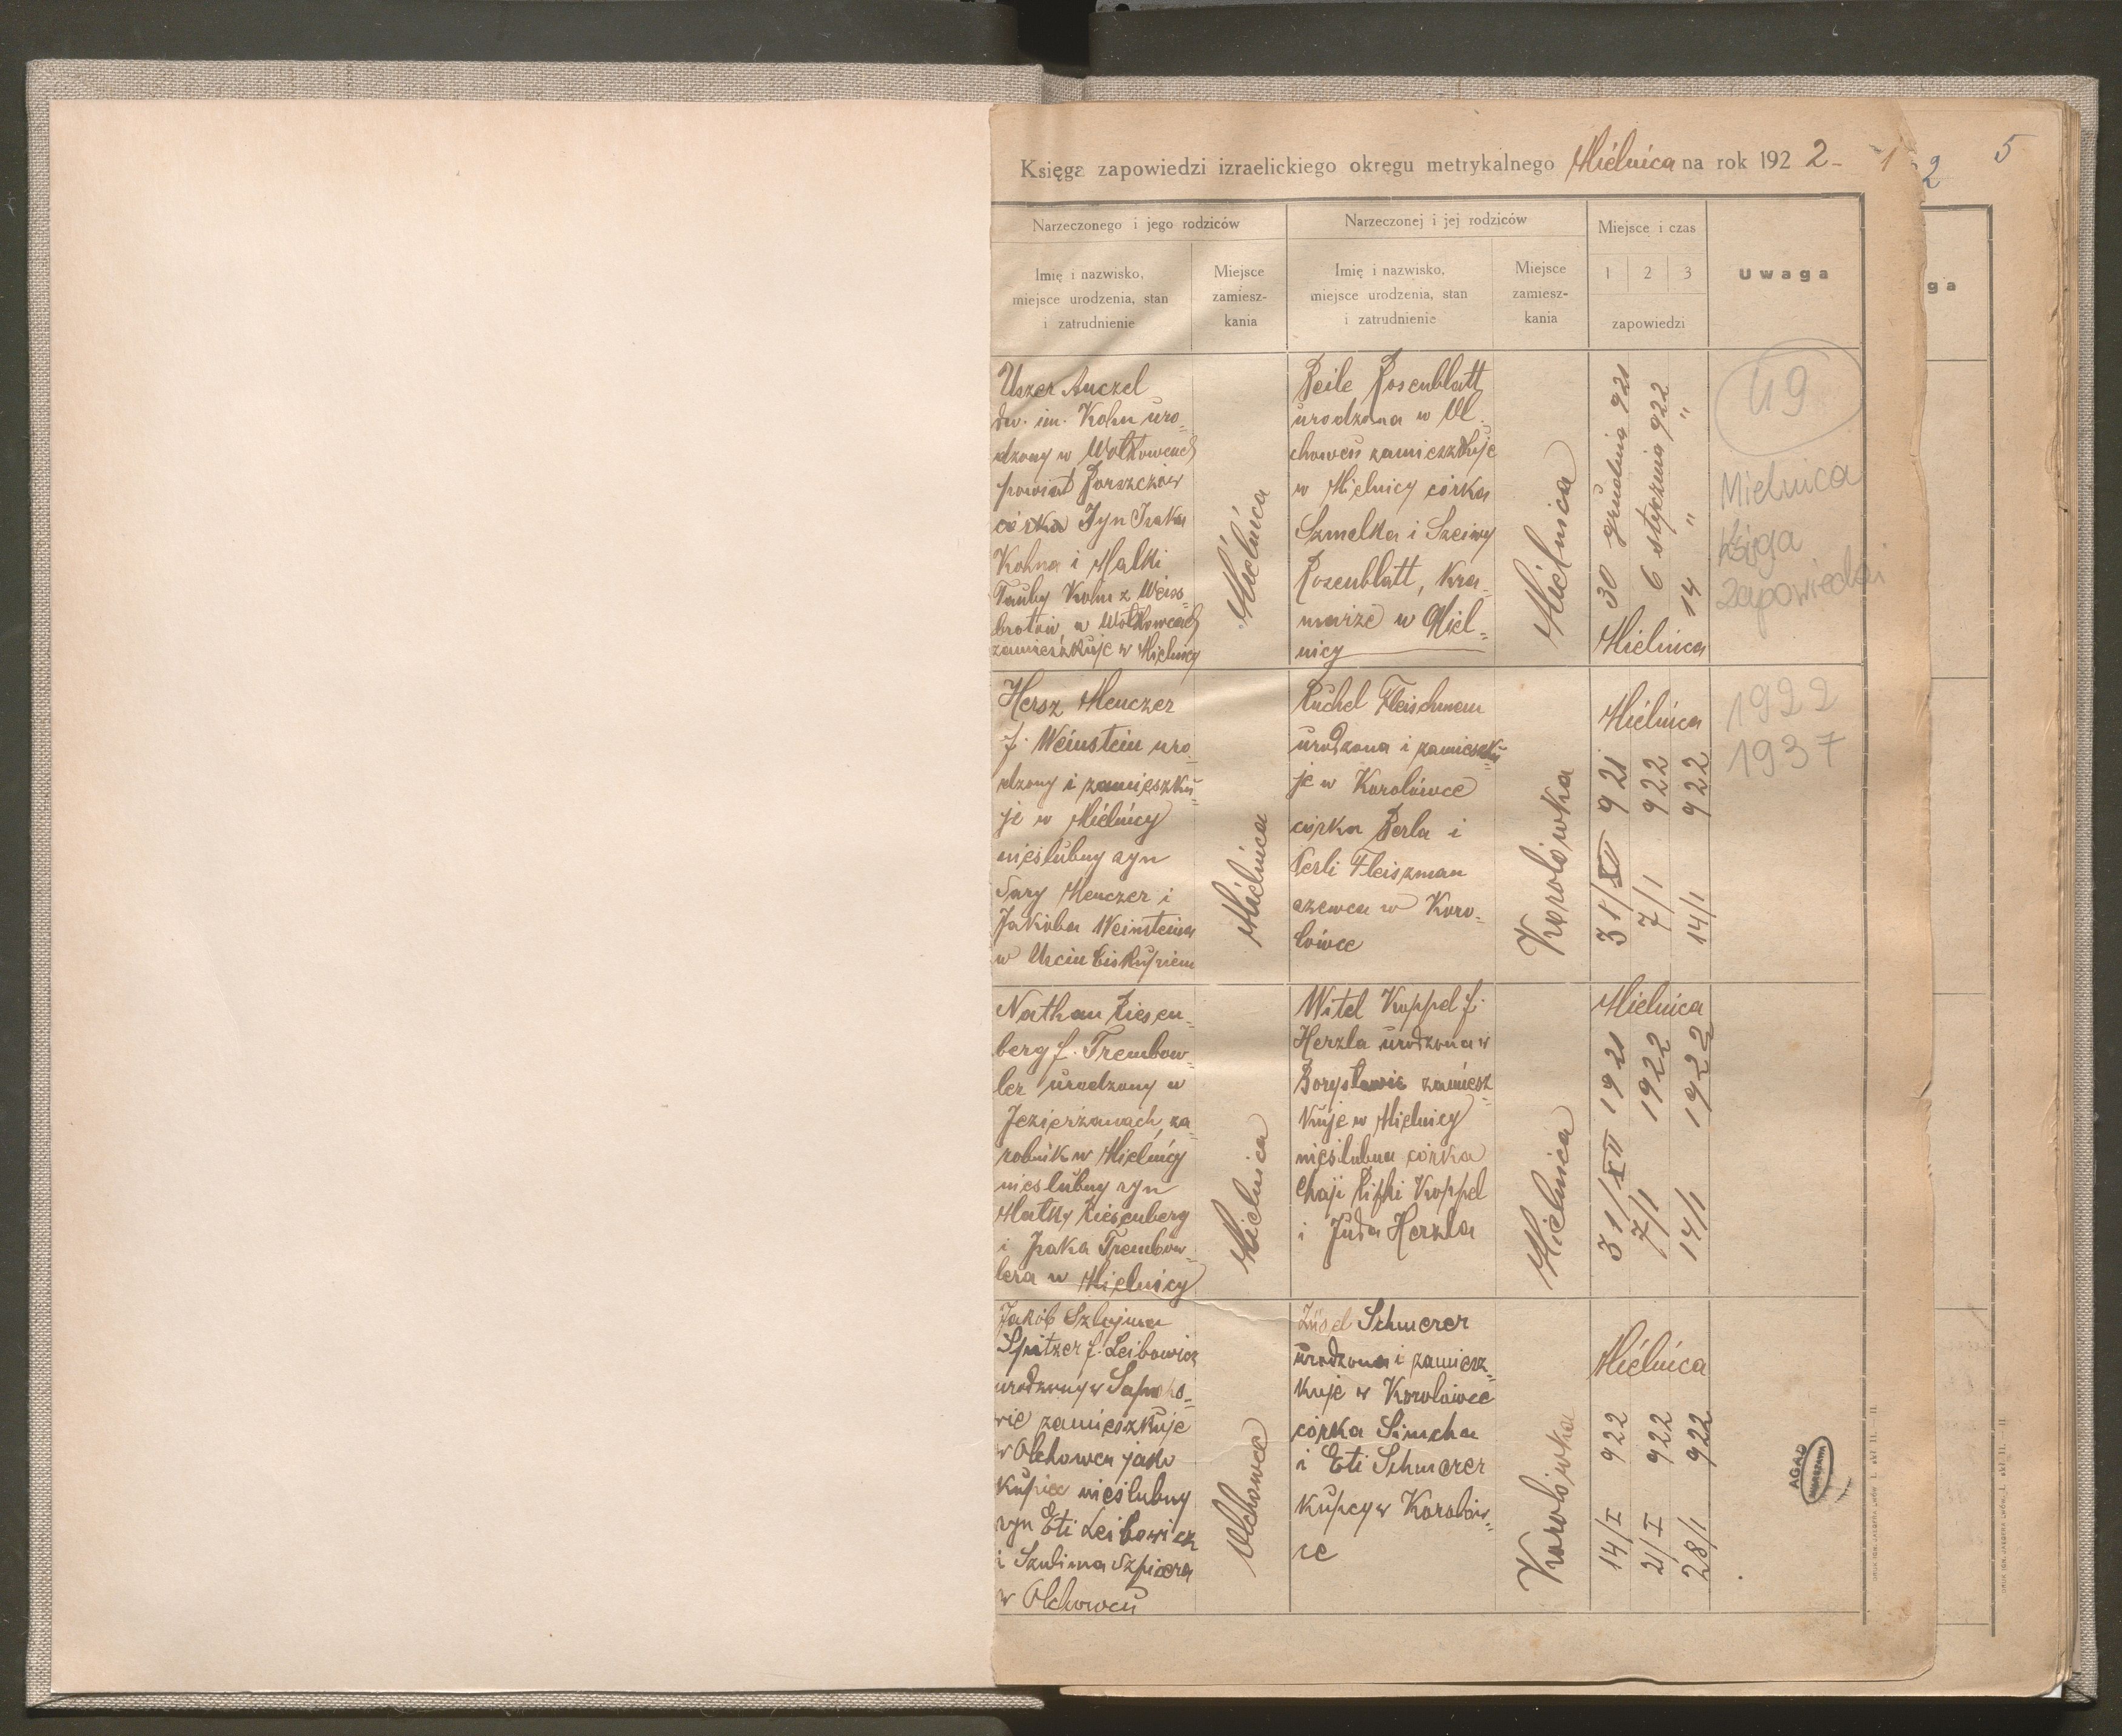 Księga zapowiedzi izraelickiego okręgu metrykalnego Mielnica na rok 1922
1
2
5
Narzeczonego i jego rodziców
Narzeczonej i jej rodziców
Miejsce i czas
Imię i nazwisko,
miejsce urodzenia, stan
i zatrudnienie
Miejsce
zamiesz-
kania
Imię i nazwisko,
miejsce urodzenia, stan
i zatrudnienie
Miejsce
zamiesz-
kania
1 2 3
zapowiedzi
Uwaga
ga
Uszer Anczel
dw. im. Kohn uro-
dzony w Wołkowcach
powiat Borszczów
córka Syn Izaka
Kohna i Malki
Tauby Kohn z Weiss-
brotów, w Wołkowcach
zamieszkuje w Mielnicy
Mielnica
Beile Rosenblatt
urodzona w Ol-
chowcu zamieszkuje
w Mielnicy córka
Szmelka i Szeiwy
Rozenblatt, kra-
marze w Miel-
nicy
Mielnica
30 grudnia 921
6 stycznia 922
14 " "
Mielnica
49
Mielnica
Księga
zapowiedzi
1922
1937
Hersz Menczer
f. Weinstein uro-
dzony i zamieszku-
je w Mielnicy
nieślubny syn
Sary Menczer i
Jakóba Weinsteina
w Uściu Biskupiem
Mielnica
Ruchel Fleischman
urodzona i zamieszku-
je w Korolówce
córka Berla i
Perli Fleiszman
szewca w Koro-
lówce
Korolówka
Mielnica
31/XII 921
7/1 922
14/1 922
Nathan Riesen-
berg f. Trembow-
ler urodzony w
Jezierzanach, za-
robnik w Mielnicy
nieślubny syn
Matky Riesenberg
i Izaka Trembow-
lera w Mielnicy
Mielnica
Witel Koppel f.
Herzla urodzona w
Borysławie zamiesz-
kuje w Mielnicy
nieślubna córka
Chaji Rifki Koppel
i Juda Herzla
Mielnica
Mielnica
31/XII 1921
7/1 1922
14/1 1922
Jakób Szlojma
Spitzer f. Leibowicz
urodzony w
zamieszkuje
w Olchowcu jako
kupiec nieślubny
syn Eti Leibowicz
i Szulima Szpicera
w Olchowcu
Olchowce
Züsel Schmerer
urodzona i zamiesz-
kuje w Korolówce
córka Simcha
i Eti Schmerer
kupcy w Korolów-
ce
Korolówka
Mielnica
14/I 922
21/I 922
28/1 922
AGAD
WARSZAWA